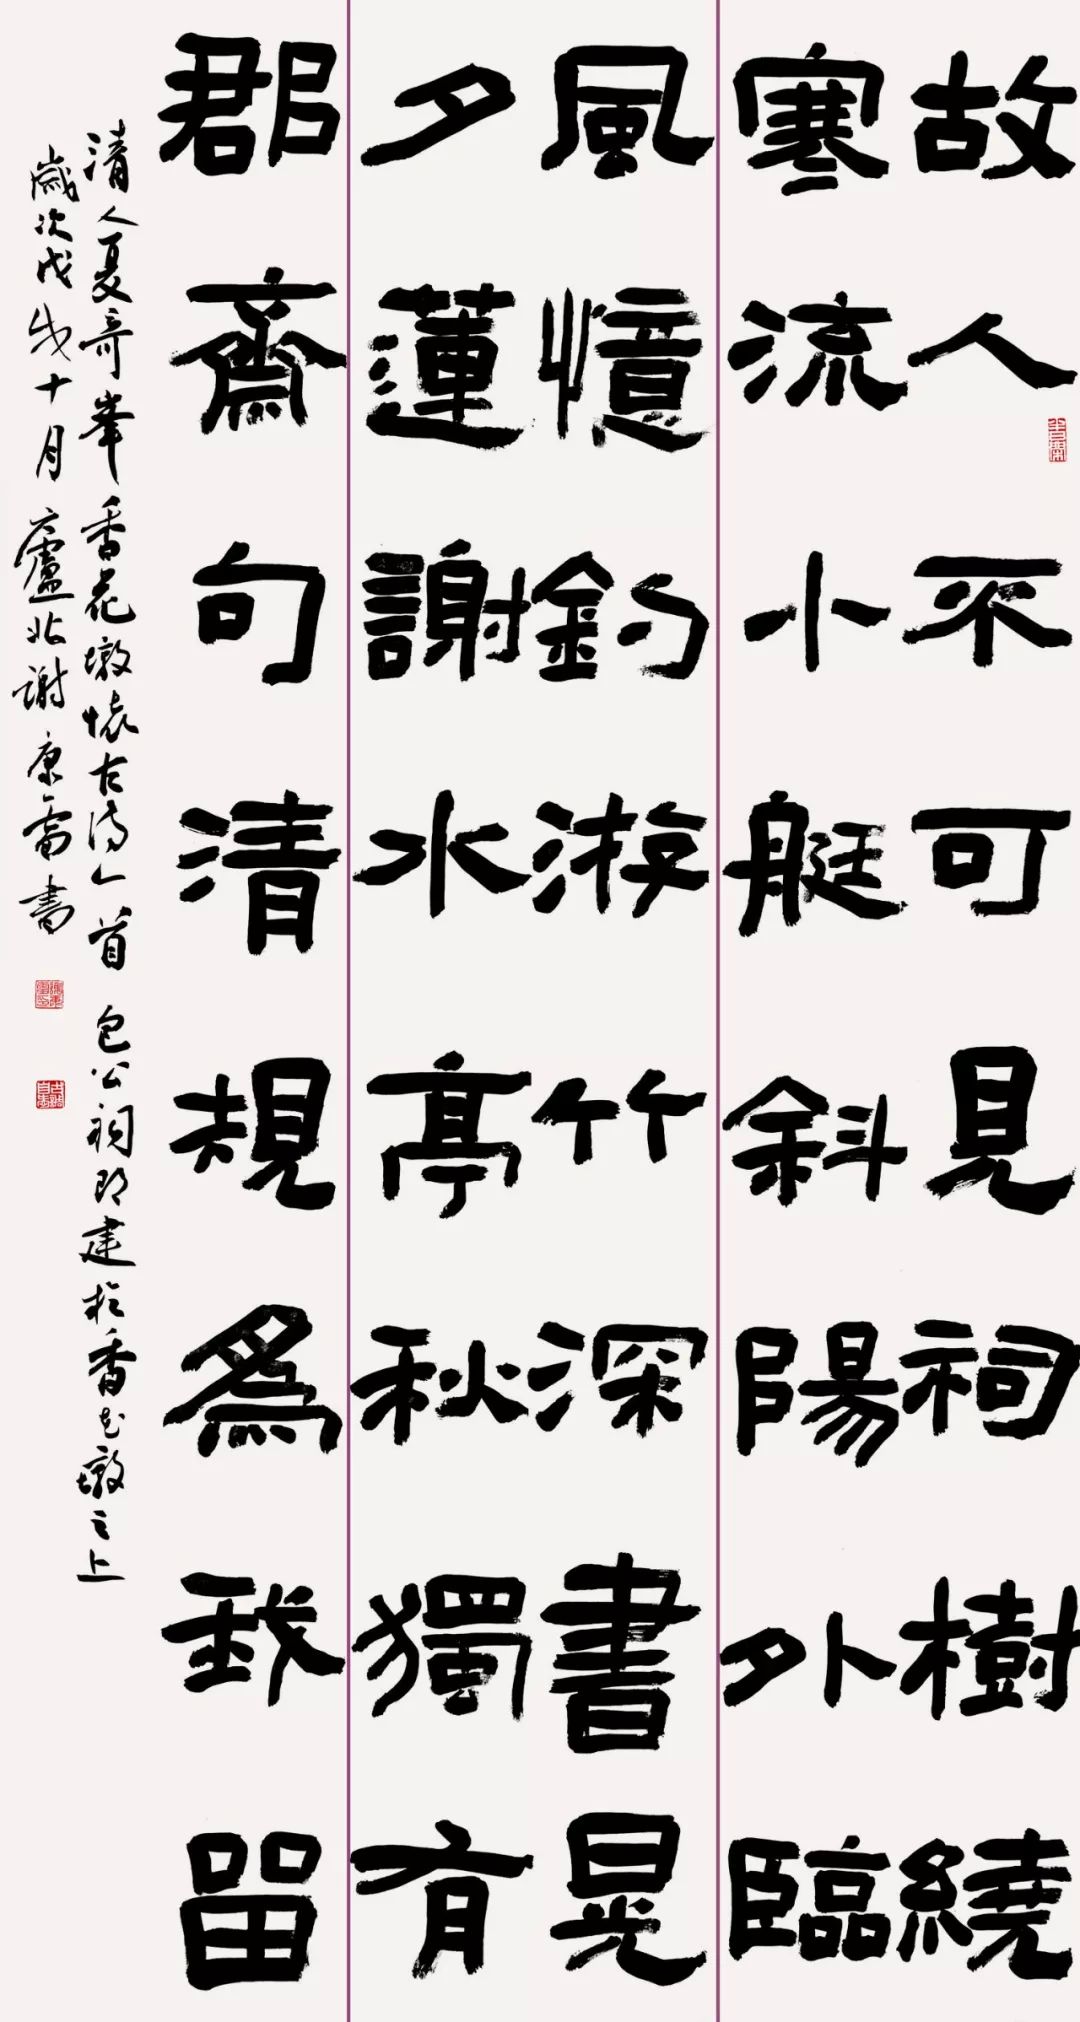 故人不可見祠樹繞
寒流小艇斜陽外臨
風憶釣游竹深書晃
夕蓮謝水亭秋獨有
郡齋句清規爲我留
清人夏奇峯香花墩懷古詩一首 包公祠即建於香花墩之上
歲次戊戌十月 廬北謝康雷書